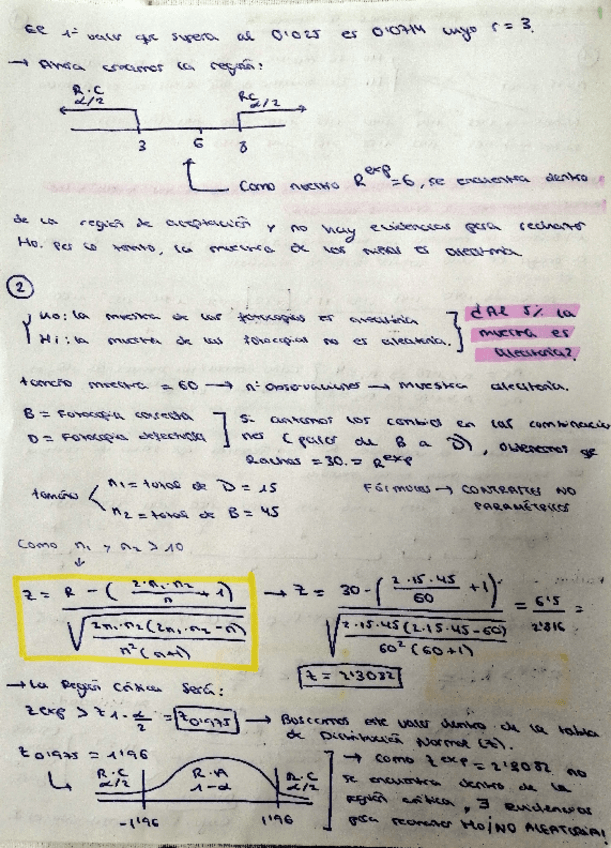 El 1º valor que supera al 0'025 es 0'0714 cuyo r = 3.
→ Ahora creamos la región:
R.C α/2
RC α/2
3 6 8
Como nuestro R^exp = 6, se encuentra dentro
de la región de aceptación y no hay evidencias para rechazar
Ho. Por lo tanto, la muestra de las es aleatoria.
2
Ho: la muestra de las fotocopias es aleatoria
H1: la muestra de las fotocopias no es aleatoria.
¿Al 5% la
muestra es
aleatoria?
tamaño muestra = 60 → nº observaciones → muestra aleatoria.
B = Fotocopia correcta
D = Fotocopia defectuosa
Si anotamos los cambios en las combinacio
nes (pasar de B a D), obtenemos qe
Rachas = 30 = R^exp
tamaño
n1 = total de D = 15
n2 = total de B = 45
Fórmulas → CONTRASTES NO
PARAMÉTRICOS
Como n1 y n2 > 10
z = R - ( 2·n1·n2 / n + 1 ) / √( 2n1·n2 (2n1·n2 - n) / n²(n+1) ) → z = 30 - ( 2·15·45 / 60 + 1 ) / √( 2·15·45 (2·15·45 - 60) / 60² (60+1) ) = 6'5 / 2'816 =
z = 2'3082
→ La Región Crítica será:
z exp > z 1 - α/2 = z 0'975 → Buscamos este valor dentro de la tabla
de Distribución Normal (z).
z 0'975 = 1'96
R.C α/2
R.A 1-α
R.C α/2
-1'96 1'96
→ Como z^exp = 2'3082 no
se encuentra dentro de la
región crítica, ∃ evidencias
para rechazar Ho/NO ALEATORIA!